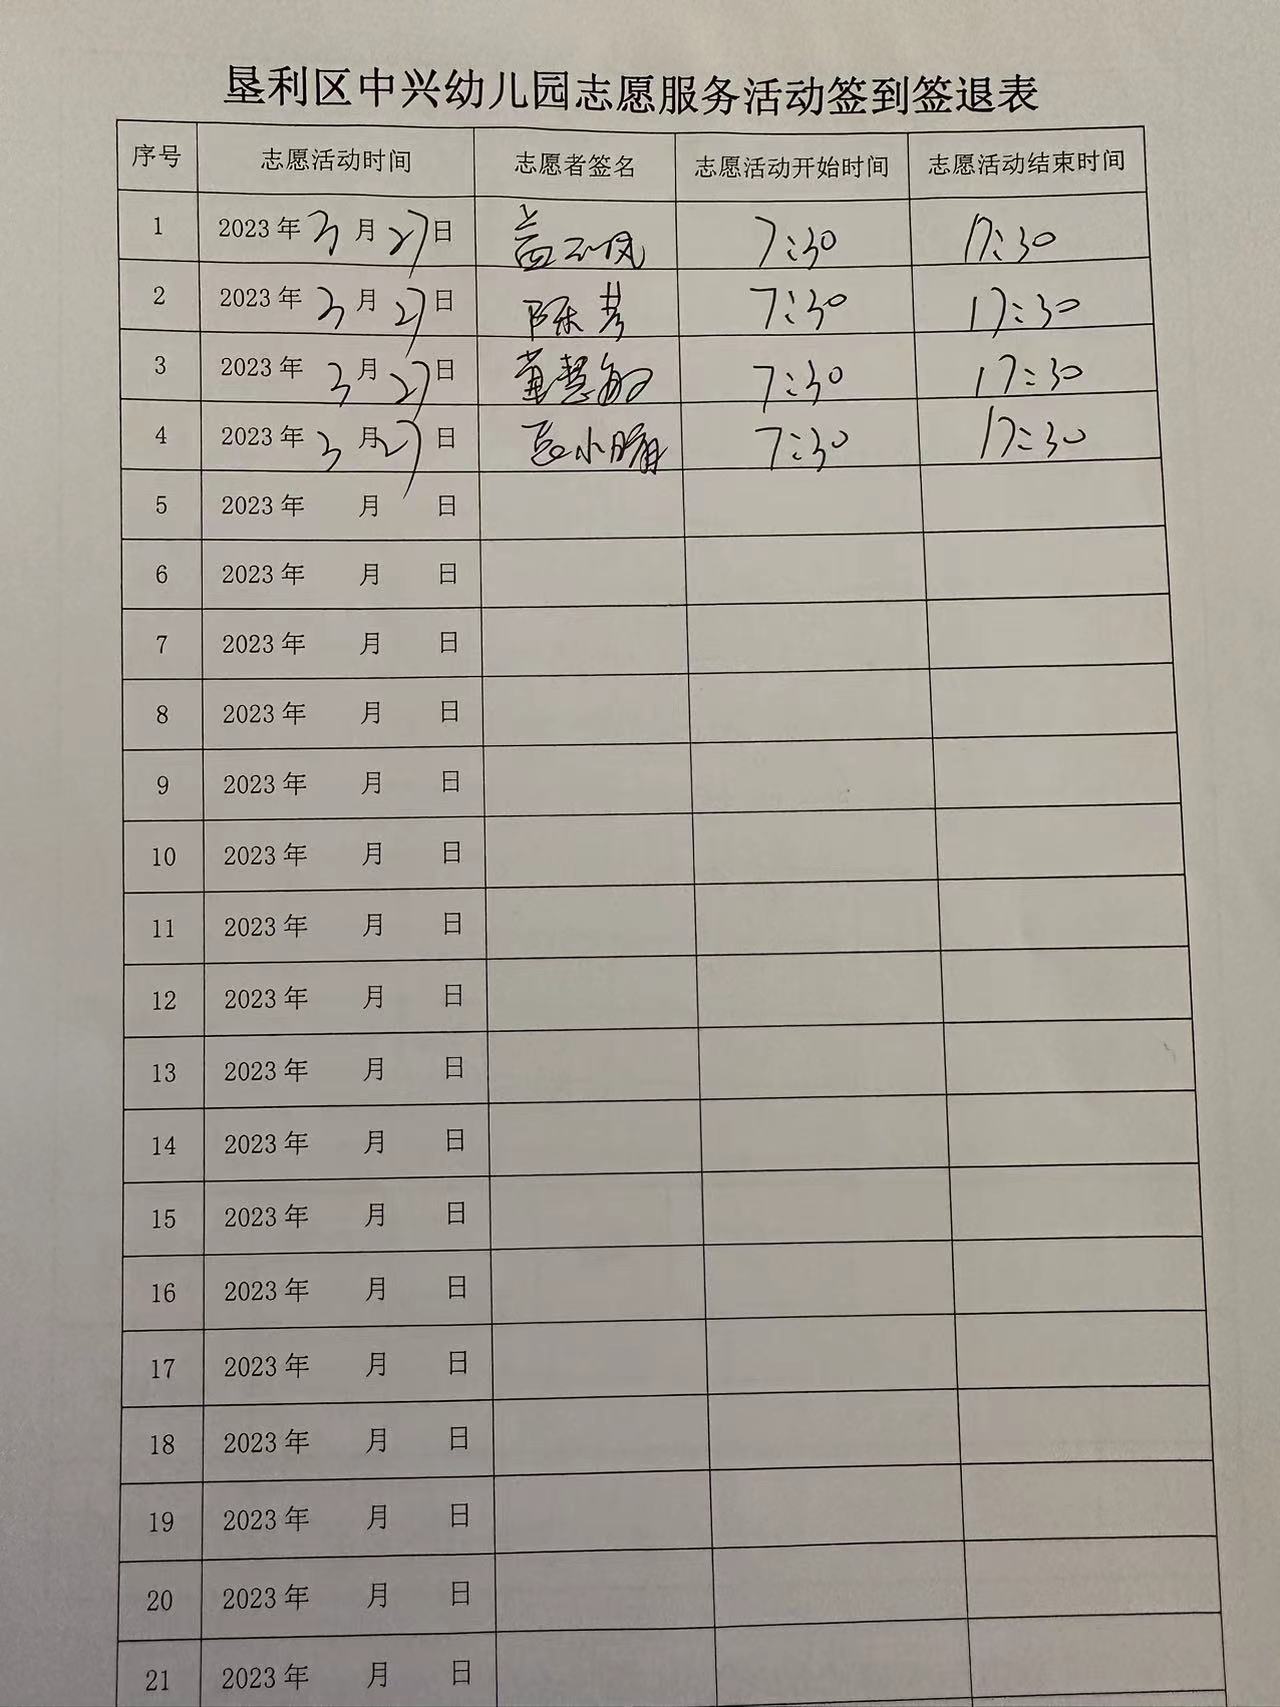 垦利区中兴幼儿园志愿服务活动签到签退表
序号 志愿活动时间 志愿者签名 志愿活动开始时间 志愿活动结束时间
1 2023年3月27日 7:30 17:30
2 2023年3月27日 陈芳 7:30 17:30
3 2023年3月27日 董慧敏 7:30 17:30
4 2023年3月27日 7:30 17:30
5 2023年 月 日
6 2023年 月 日
7 2023年 月 日
8 2023年 月 日
9 2023年 月 日
10 2023年 月 日
11 2023年 月 日
12 2023年 月 日
13 2023年 月 日
14 2023年 月 日
15 2023年 月 日
16 2023年 月 日
17 2023年 月 日
18 2023年 月 日
19 2023年 月 日
20 2023年 月 日
21 2023年 月 日